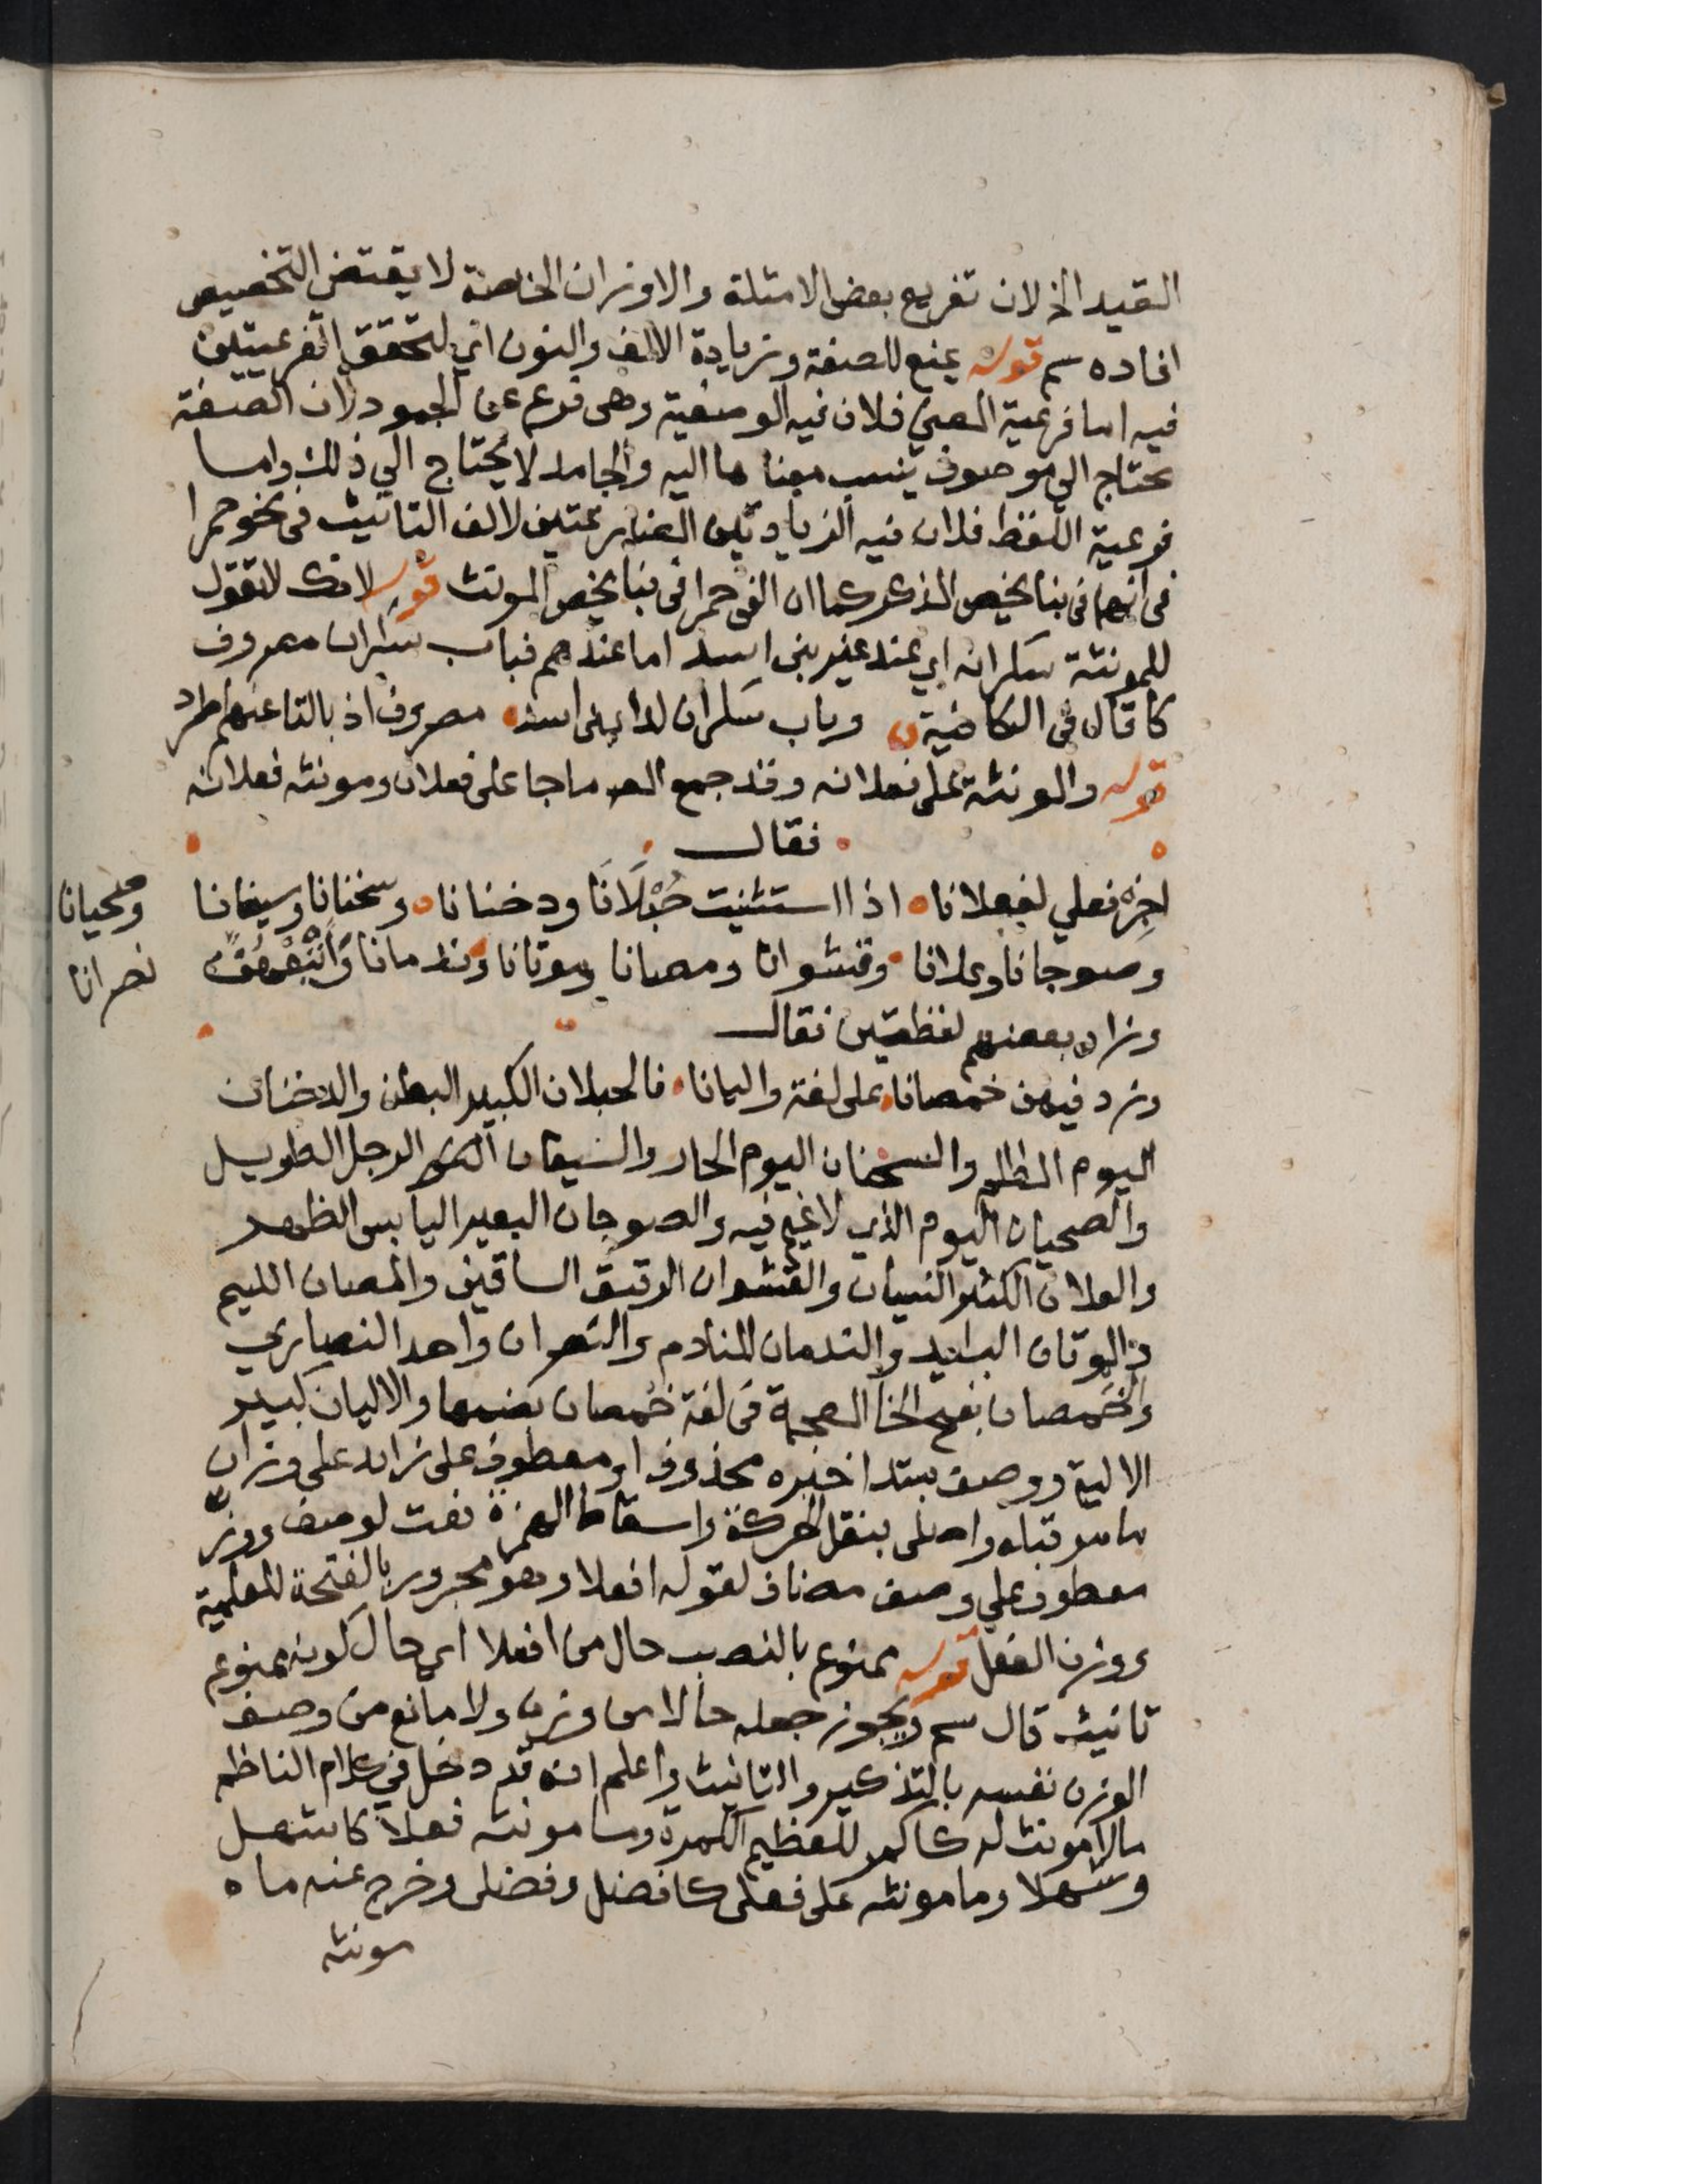 القيد الخ لان تفريع بعض الامثلة والاوزان الخاصة لا يقتضي التخصيص
افاده سم قوله يمنع للصفة وزيادة الالف والنون اي لتحقق الفرعيتين
فيه اما فرعية المعني فلان فيه الوصفية وهي فرع عن الجمود لان الصفة
تحتاج الي موصوف ينسب معناها اليه والجامد لا يحتاج الي ذلك واما
فرعية اللفظ فلان فيه الزيادتين المضارعتين لالف التانيث في نحو حمرا
في انهما في بنا يخص المذكر كما ان الفي حمرا في بنا يخص المونث قوله لانك لا تقول
للمونثة سكرانه اي عند غير بني اسد اما عندهم فباب سكران مصروف
كما قال في الكافية وباب سكران لدا بني اسد مصروف اذ بالتا عنهم اطرد
قوله والمونثة علي فعلانه وقد جمع المص ما جا علي فعلان ومونثه فعلانه
فقال
اجز فعلي لفعلانا اذا استثنيت حَبْلَانَا ودخنانا وسخنانا وسيفانا
وصحيانا
وصوجانا وعلانا وقشوانا ومصانا وموتانا وندمانا وأتبعهن
نصرانا
وزاد بعضهم لفظتين فقال
وزد فيهن خمصانا علي لغة واليانا فالحبلان الكبير البطن والدخنان
اليوم المظلم والسخنان اليوم الحار والسيفان الرجل الطويل
والصحيان اليوم الذي لا غيم فيه والصوجان البعير اليابس الظهر
والعلان الكثير النسيان والقشوان الرقيق الساقين والمصان اللييم
والموتان البليد والندمان المنادم والنصران واحد النصاري
والخَمصان بفتح الخا المعجمة في لغة خُمصان بضمها والاليان كبير
الالية ووصف مبتدا خبره محذوف او معطوف علي زايد علي وزان
ما مر قبله واصلي بنقل الحركة واسقاط الهمزة نعت لوصف ووزن
معطوف علي وصف مضاف لقوله افعلا وهو مجرور بالفتحة للعلمية
ووزن الفعل قوله ممنوع بالنصب حال من افعلا اي حال كونه ممنوع
تانيث قال سم ويجوز جعله حالا من وزن ولا مانع من وصف
الوزن نفسه بالتذكير والتانيث واعلم انه قد دخل في كلام الناظم
ما لا مونث له كاكمر للعظيم الكمرة وما مونثه فعلا كاشهل
وشهلا وما مونثه علي فعلي كافضل وفضلي وخرج عنه ما
مونثه